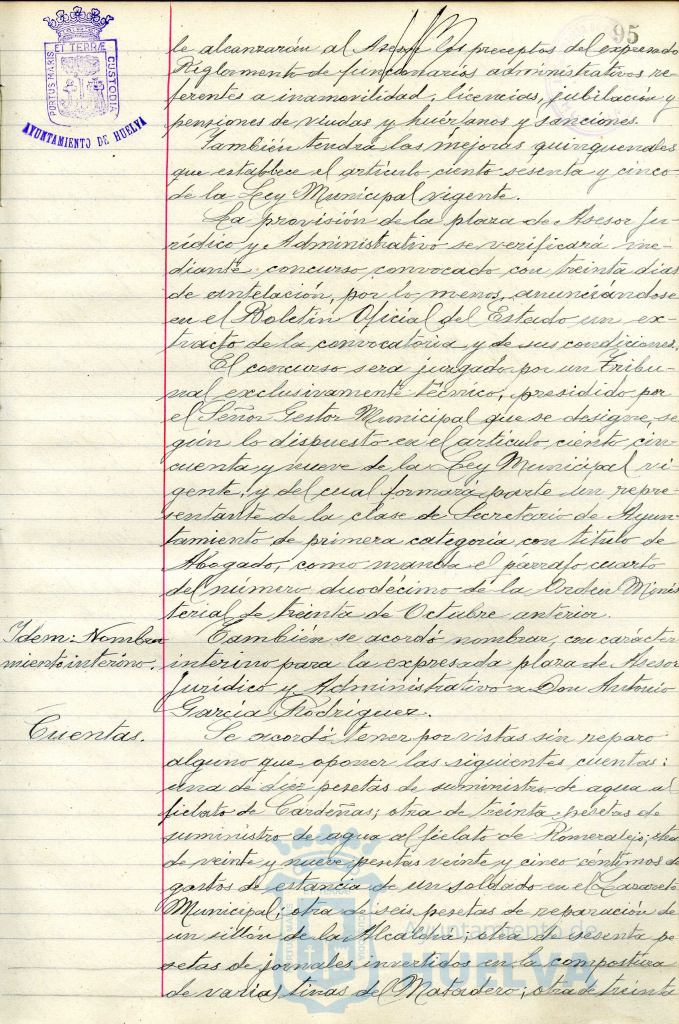 95
PORTUS MARIS ET TERRÆ CUSTODIA
AYUNTAMIENTO DE HUELVA
le alcanzarán al Asesor los preceptos del expresado
Reglamento de funcionarios administrativos re-
ferentes a inamovilidad, licencias, jubilación y
pensiones de viudas y huérfanos y sanciones.
También tendrá las mejoras quinquenales
que establece el artículo ciento sesenta y cinco
de la Ley Municipal vigente.
La provisión de la plaza de Asesor Ju-
rídico y Administrativo se verificará me-
diante concurso convocado con treinta días
de antelación, por lo menos, anunciándose
en el Boletín Oficial del Estado un ex-
tracto de la convocatoria y de sus condiciones.
El concurso será juzgado por un Tribu-
nal exclusivamente técnico, presidido por
el Señor Gestor Municipal que se designe, se-
gún lo dispuesto en el artículo ciento cin-
cuenta y nueve de la Ley Municipal vi-
gente, y del cual formará parte un repre-
sentante de la clase de Secretario de Ayun-
tamiento de primera categoría, con título de
Abogado, como manda el párrafo cuarto
del número duodécimo de la Orden Minis-
terial de treinta de Octubre anterior.
Idem: Nombra
miento interino.
También se acordó nombrar, con carácter
interino para la expresada plaza de Asesor
Jurídico y Administrativo a Don Antonio
García Rodríguez.
Cuentas.
Se acordó tener por vistas sin reparo
alguno que oponer las siguientes cuentas:
una de diez pesetas de suministro de agua al
fielato de Cardeñas; otra de treinta pesetas de
suministro de agua al fielato de Romeralejo; otra
de veinte y nueve pesetas veinte y cinco céntimos de
gastos de estancia de un soldado en el Lazareto
Municipal; otra de seis pesetas de reparación de
un sillón de la Alcaldía; otra de sesenta pe-
setas de jornales invertidos en la compostura
de varias tinas de Matadero; otra de treinta
Ayuntamiento de
HUELVA